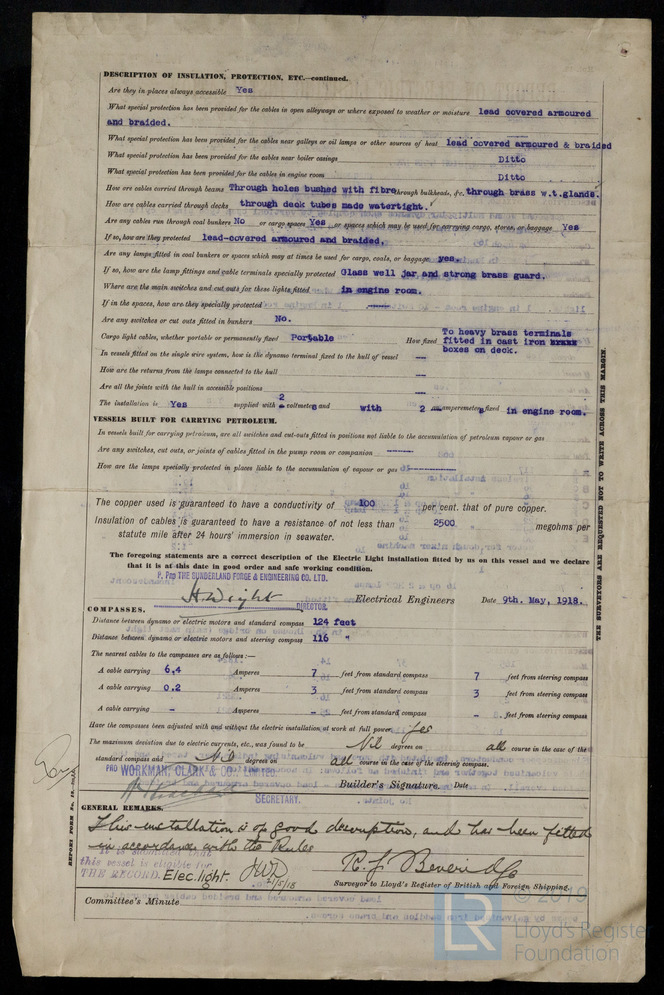 DESCRIPTION OF INSULATION, PROTECTION, ETC.—continued.
Are they in places always accessible Yes
What special protection has been provided for the cables in open alleyways or where exposed to weather or moisture lead covered armoured
and braided.
What special protection has been provided for the cables near galleys or oil lamps or other sources of heat lead covered armoured & braided
What special protection has been provided for the cables near boiler casings Ditto
What special protection has been provided for the cables in engine room Ditto
How are cables carried through beams Through holes bushed with fibre through bulkheads, &c. through brass w.t.glands.
How are cables carried through decks through deck tubes made watertight.
Are any cables run through coal bunkers No or cargo spaces Yes or spaces which may be used for carrying cargo, stores, or baggage Yes
If so, how are they protected lead-covered armoured and braided.
Are any lamps fitted in coal bunkers or spaces which may at times be used for cargo, coals, or baggage yes
If so, how are the lamp fittings and cable terminals specially protected Glass well jar and strong brass guard.
Where are the main switches and cut outs for these lights fitted in engine room.
If in the spaces, how are they specially protected -----
Are any switches or cut outs fitted in bunkers No.
Cargo light cables, whether portable or permanently fixed Portable How fixed To heavy brass terminals
fitted in cast iron
boxes on deck.
In vessels fitted on the single wire system, how is the dynamo terminal fixed to the hull of vessel —
How are the returns from the lamps connected to the hull —
Are all the joints with the hull in accessible positions —
The installation is Yes supplied with 2 voltmeters and with 2 amperemeters fixed in engine room.
VESSELS BUILT FOR CARRYING PETROLEUM.
In vessels built for carrying petroleum, are all switches and cut-outs fitted in positions not liable to the accumulation of petroleum vapour or gas
Are any switches, cut outs, or joints of cables fitted in the pump room or companion -----
How are the lamps specially protected in places liable to the accumulation of vapour or gas -----
The copper used is guaranteed to have a conductivity of 100 per cent. that of pure copper.
Insulation of cables is guaranteed to have a resistance of not less than 2500 megohms per
statute mile after 24 hours' immersion in seawater.
The foregoing statements are a correct description of the Electric Light installation fitted by us on this vessel and we declare
that it is at this date in good order and safe working condition.
P. Pro THE SUNDERLAND FORGE & ENGINEERING CO. LTD.
H. Wright DIRECTOR. Electrical Engineers Date 9th. May, 1918.
COMPASSES.
Distance between dynamo or electric motors and standard compass 124 feet
Distance between dynamo or electric motors and steering compass 116 "
The nearest cables to the compasses are as follows:—
A cable carrying 6.4 Amperes 7 feet from standard compass 7 feet from steering compass
A cable carrying 0.2 Amperes 3 feet from standard compass 3 feet from steering compass
A cable carrying - Amperes - feet from standard compass - feet from steering compass
Have the compasses been adjusted with and without the electric installation at work at full power yes
The maximum deviation due to electric currents, etc., was found to be Nil degrees on all course in the case of the
standard compass and Nil degrees on all course in the case of the steering compass.
PRO WORKMAN, CLARK & CO., LIMITED.
SECRETARY. Builder's Signature. Date
GENERAL REMARKS.
This installation is of good description, and has been fitted
in accordance with the Rules
It is submitted that
this vessel is eligible for
THE RECORD. Elec. light. JWD 21/5/18
R. J. Beveridge
Surveyor to Lloyd's Register of British and Foreign Shipping.
Committee's Minute
THE SURVEYORS ARE REQUESTED NOT TO WRITE ACROSS THIS MARGIN.
© 2019
LR
Lloyd's Register
Foundation